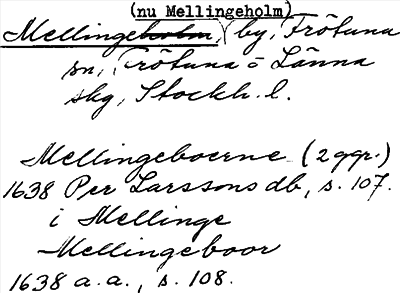 (nu Mellingeholm)
Mellingeholm, by, Frötuna
sn, Frötuna o Länna
skg, Stockh. l.
Mellingeboerne (2 ggr.)
1638 Per Larssons db, s. 107.
i Mellinge
Mellingeboor
1638 a. a., s. 108.